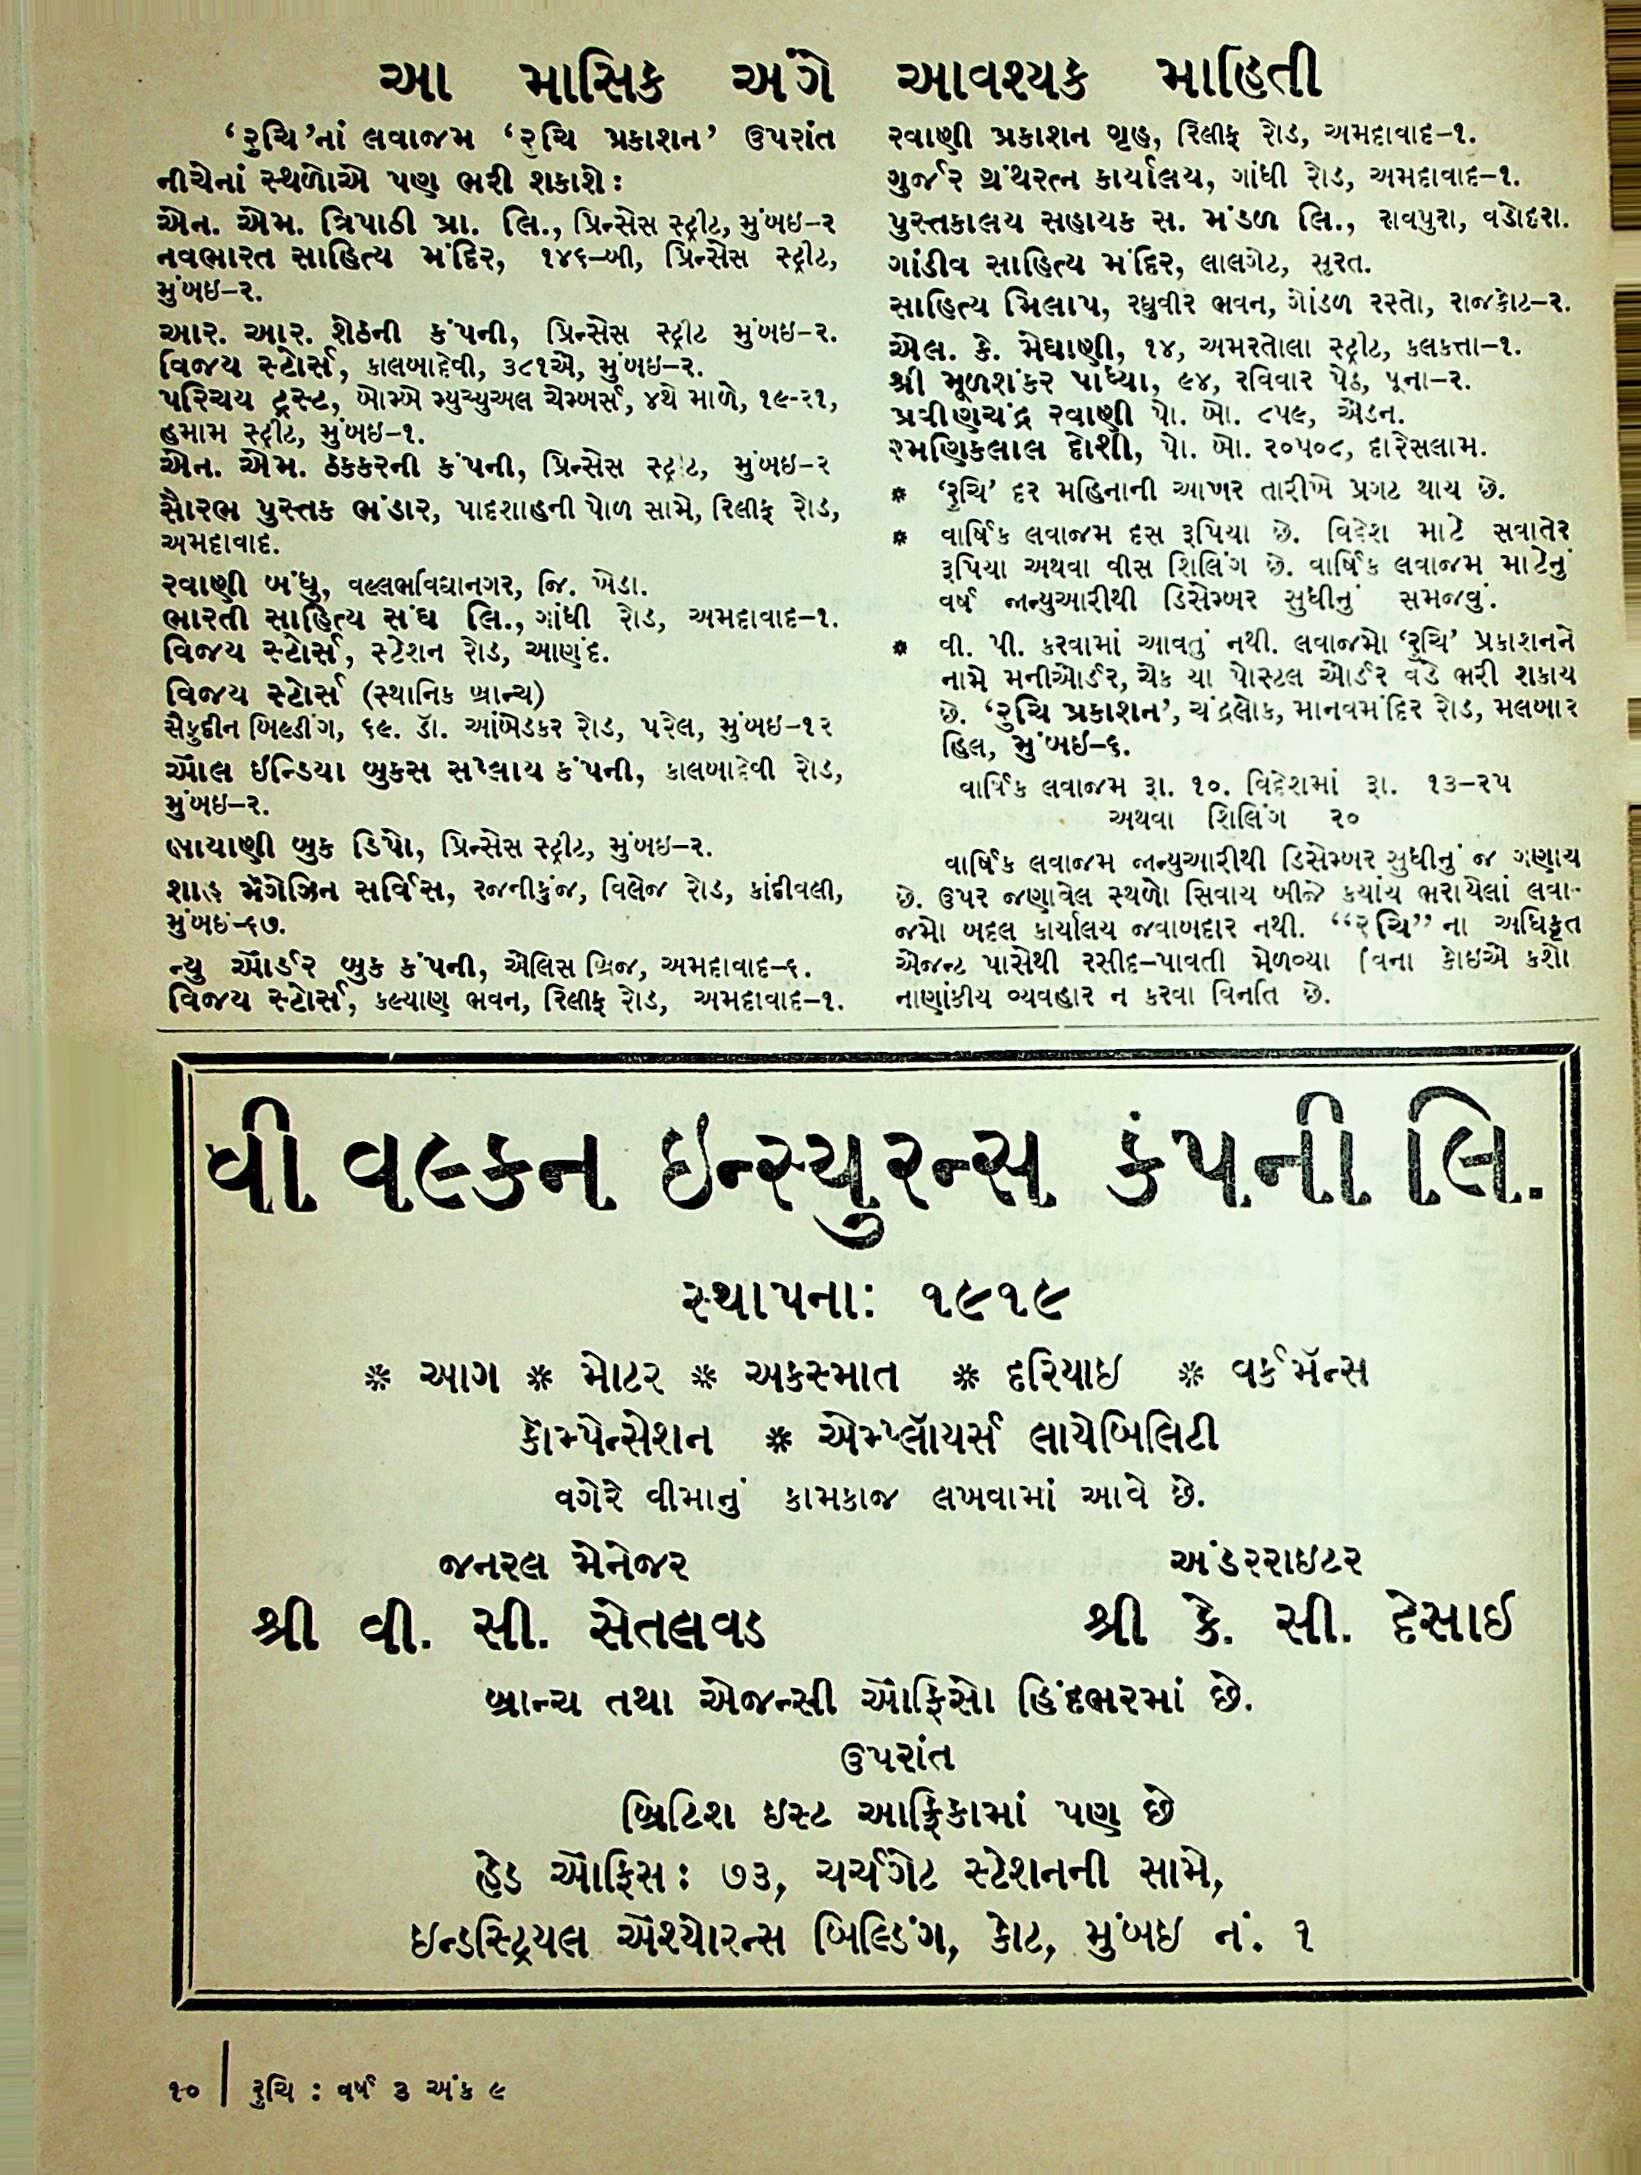 આ માસિક અંગે આવશ્યક માહિતી
‘રુચિ’નાં લવાજમ ‘રુચિ પ્રકાશન’ ઉપરાંત
નીચેનાં સ્થળોએ પણ ભરી શકાશે :
એન. એમ. ત્રિપાઠી પ્રા. લિ., પ્રિન્સેસ સ્ટ્રીટ, મુંબઇ–૨
નવભારત સાહિત્ય મંદિર, ૧૪૬–બી, પ્રિન્સેસ સ્ટ્રીટ,
મુંબઇ–૨.
આર. આર. શેઠની કંપની, પ્રિન્સેસ સ્ટ્રીટ મુંબઇ–૨.
વિજય સ્ટોર્સ, કાલબાદેવી, ૩૮૧એ, મુંબઇ–૨.
પરિચય ટ્રસ્ટ, બોમ્બે મ્યુચ્યુઅલ ચેમ્બર્સ, ૪થે માળે, ૧૯-૨૧,
હમામ સ્ટ્રીટ, મુંબઇ–૧.
એન. એમ. ઠક્કરની કંપની, પ્રિન્સેસ સ્ટ્રીટ, મુંબઇ–૨
સૌરભ પુસ્તક ભંડાર, પાદશાહની પોળ સામે, રિલીફ રોડ,
અમદાવાદ.
રવાણી બંધુ, વલ્લભવિદ્યાનગર, જિ. ખેડા.
ભારતી સાહિત્ય સંઘ લિ., ગાંધી રોડ, અમદાવાદ–૧.
વિજય સ્ટોર્સ, સ્ટેશન રોડ, આણંદ.
વિજય સ્ટોર્સ (સ્થાનિક બ્રાન્ચ)
સૈફુદ્દીન બિલ્ડીંગ, ૬૯. ડૉ. આંબેડકર રોડ, પરેલ, મુંબઇ–૧૨
ઑલ ઈન્ડિયા બુક્સ સપ્લાય કંપની, કાલબાદેવી રોડ,
મુંબઇ–૨.
ભાયાણી બુક ડિપો, પ્રિન્સેસ સ્ટ્રીટ, મુંબઇ–૨.
શાહ મૅગેઝિન સર્વિસ, રજનીકુંજ, વિલેજ રોડ, કાંદીવલી,
મુંબઇ-૬૭.
ન્યુ ઑર્ડર બુક કંપની, એલિસ બ્રિજ, અમદાવાદ–૬.
વિજય સ્ટોર્સ, કલ્યાણ ભવન, રિલીફ રોડ, અમદાવાદ–૧.
રવાણી પ્રકાશન ગૃહ, રિલીફ રોડ, અમદાવાદ–૧.
ગુર્જર ગ્રંથરત્ન કાર્યાલય, ગાંધી રોડ, અમદાવાદ–૧.
પુસ્તકાલય સહાયક સ. મંડળ લિ., રાવપુરા, વડોદરા.
ગાંડીવ સાહિત્ય મંદિર, લાલગેટ, સૂરત.
સાહિત્ય મિલાપ, રઘુવીર ભવન, ગોંડળ રસ્તો, રાજકોટ–૨.
એલ. કે. મેઘાણી, ૧૪, અમરતોલા સ્ટ્રીટ, કલકત્તા–૧.
શ્રી મૂળશંકર પાંધ્યા, ૯૪, રવિવાર પેઠ, પૂના–૨.
પ્રવીણચંદ્ર રવાણી પો. બો. ૮૫૯, એડન.
રમણિકલાલ દોશી, પો. બો. ૨૦૫૦૮, દારેસલામ.
* ‘રુચિ’ દર મહિનાની આખર તારીખે પ્રગટ થાય છે.
* વાર્ષિક લવાજમ દસ રૂપિયા છે. વિદેશ માટે સવાતેર
રૂપિયા અથવા વીસ શિલિંગ છે. વાર્ષિક લવાજમ માટેનું
વર્ષ જાન્યુઆરીથી ડિસેમ્બર સુધીનું સમજવું.
* વી. પી. કરવામાં આવતું નથી. લવાજમો ‘રુચિ’ પ્રકાશનને
નામે મનીઑર્ડર, ચેક યા પોસ્ટલ ઑર્ડર વડે ભરી શકાય
છે. ‘રુચિ પ્રકાશન’, ચંદ્રલોક, માનવમંદિર રોડ, મલબાર
હિલ, મુંબઇ–૬.
વાર્ષિક લવાજમ રૂા. ૧૦. વિદેશમાં રૂા. ૧૩–૨૫
અથવા શિલિંગ ૨૦
વાર્ષિક લવાજમ જાન્યુઆરીથી ડિસેમ્બર સુધીનું જ ગણાય
છે. ઉપર જણાવેલ સ્થળો સિવાય બીજે ક્યાંય ભરાયેલાં લવા-
જમો બદલ કાર્યાલય જવાબદાર નથી. “રુચિ” ના અધિકૃત
એજન્ટ પાસેથી રસીદ–પાવતી મેળવ્યા વિના કોઇએ કશો
નાણાંકીય વ્યવહાર ન કરવા વિનતિ છે.
ધી વલ્કન ઇન્સ્યુરન્સ કંપની લિ.
સ્થાપના: ૧૯૧૯
* આગ * મોટર * અકસ્માત * દરિયાઇ * વર્કમૅન્સ
કૉમ્પેન્સેશન * એમ્પ્લૉયર્સ લાયેબિલિટી
વગેરે વીમાનું કામકાજ લખવામાં આવે છે.
જનરલ મેનેજર અંડરરાઇટર
શ્રી વી. સી. સેતલવડ શ્રી કે. સી. દેસાઈ
બ્રાન્ચ તથા એજન્સી ઑફિસો હિંદભરમાં છે.
ઉપરાંત
બ્રિટિશ ઇસ્ટ આફ્રિકામાં પણ છે
હેડ ઑફિસ : ૭૩, ચર્ચગેટ સ્ટેશનની સામે,
ઇન્ડસ્ટ્રિયલ ઍશ્યોરન્સ બિલ્ડિંગ, કોટ, મુંબઇ નં. ૧
૧૦ | રુચિ : વર્ષ ૩ અંક ૯